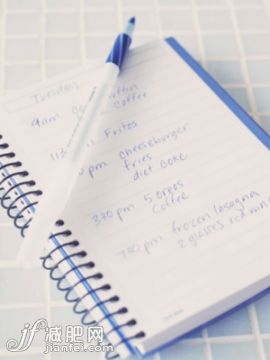 Tuesday
9am
Coffee
Fritos
pm cheeseburger
fries
diet coke
330 pm 5 oreos
Coffee
730 pm frozen lasagna
2 glasses red wine
减肥网
jianfei.com